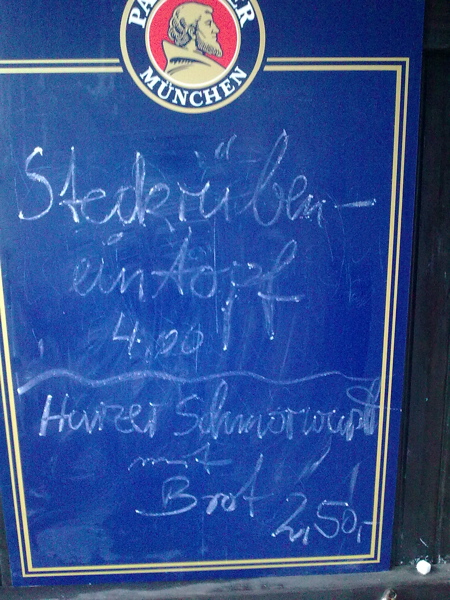 PA ER
MÜNCHEN
Steckrüben-
eintopf
4,00
Harzer Schmorwurst
mit
Brot 2,50,-